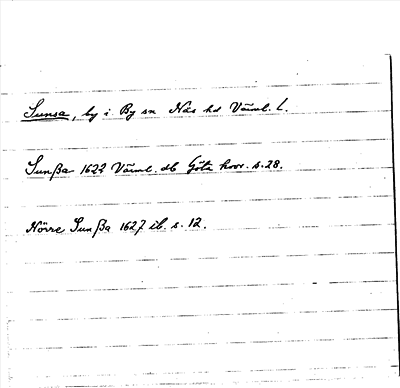 Sunsa, by i By sn Näs hd Värml. l.
Sunßa 1622 Värml. db Göta hovr. s. 28.
Nörre Sunßa 1627 ib. s. 12.